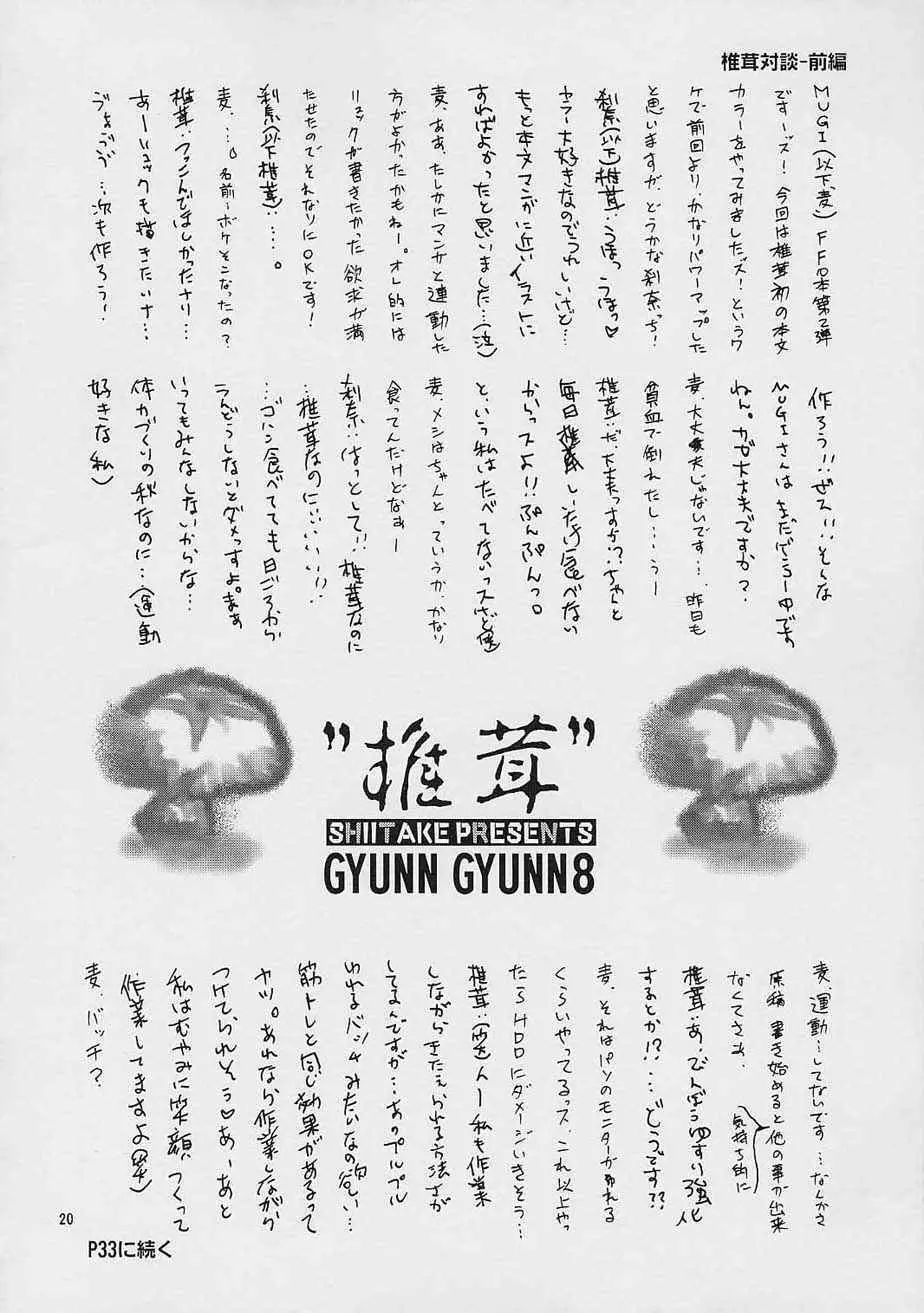 椎茸対談-前編
MUGI(以下麦)FF8本第2弾
ですーズ!今回は椎茸初の本文
カラーをやってみましたッズ!というワ
ケで前回よりかなりパワーアップした
と思いますが どうかな刹奈っち!
刹奈(以下)椎茸:うほっ うほっ♡
カラー大好きなのでうれしいけど…
もっと本文マンガに近いイラストに
すればよかったと思いました…(泣)
麦、ああ、たしかにマンガと連動した
方がよかったかもねー。オレ的には
リュックが書きたかった欲求が満
たせたのでそれなりにOKです!
刹奈(以下椎茸):…。
麦、…。名前…ボケそこなったの?
椎茸:つっこんでほしかったナリ…
あーリュックも描きたいナ…
うおおおお…次も作ろう!
作ろう!!ぜス!!そんな
MUGIさんはまだげんこー中です
ねん。カゼ大丈夫ですか?
麦、大丈夫じゃないです…、昨日も
貧血で倒れたし…うー
椎茸:だ、大丈夫っすか!?ちゃんと
毎日椎茸(しいたけ)食べない
からっスよ!!ぷんぷんっ。
という私はたべてないっスけど(笑)
麦、メシはちゃんとっていうか、かなり
食ってんだけどなぁー
刹奈:はっとして!!椎茸なのに
…椎茸なのにいいいい!!
…ゴハン食べてても日ごろから
うんどうしないとダメっすよ。まぁ
いってもみんなしないからな…
体力づくりの秋なのに…(運動
好きな私)
"椎茸"
SHIITAKE PRESENTS
GYUNN GYUNN8
麦、運動…してないです…なんかさ
原稿 書き始めると他の事が出来
なくてさぁ、
気持ち的に
椎茸:あ、でんぼうゆすい強化
するとか!?…どうっです??
麦、それはパソのモニターがゆれる
くらいやってるっス、これ以上やっ
たらHDDにダメージいきそう…
椎茸:(笑)んー私も作業
しながらきたえられる方法さが
してるんですが…あのプルプル
ゆれるバンドみたいなの欲しい…
筋トレと同じ効果があるって
ヤツ。あれなら作業しながら
つけてられそう♡あーあと
私はむやみに笑顔つくって
作業してますよ(笑)
麦、バッチ?
20
P33に続く